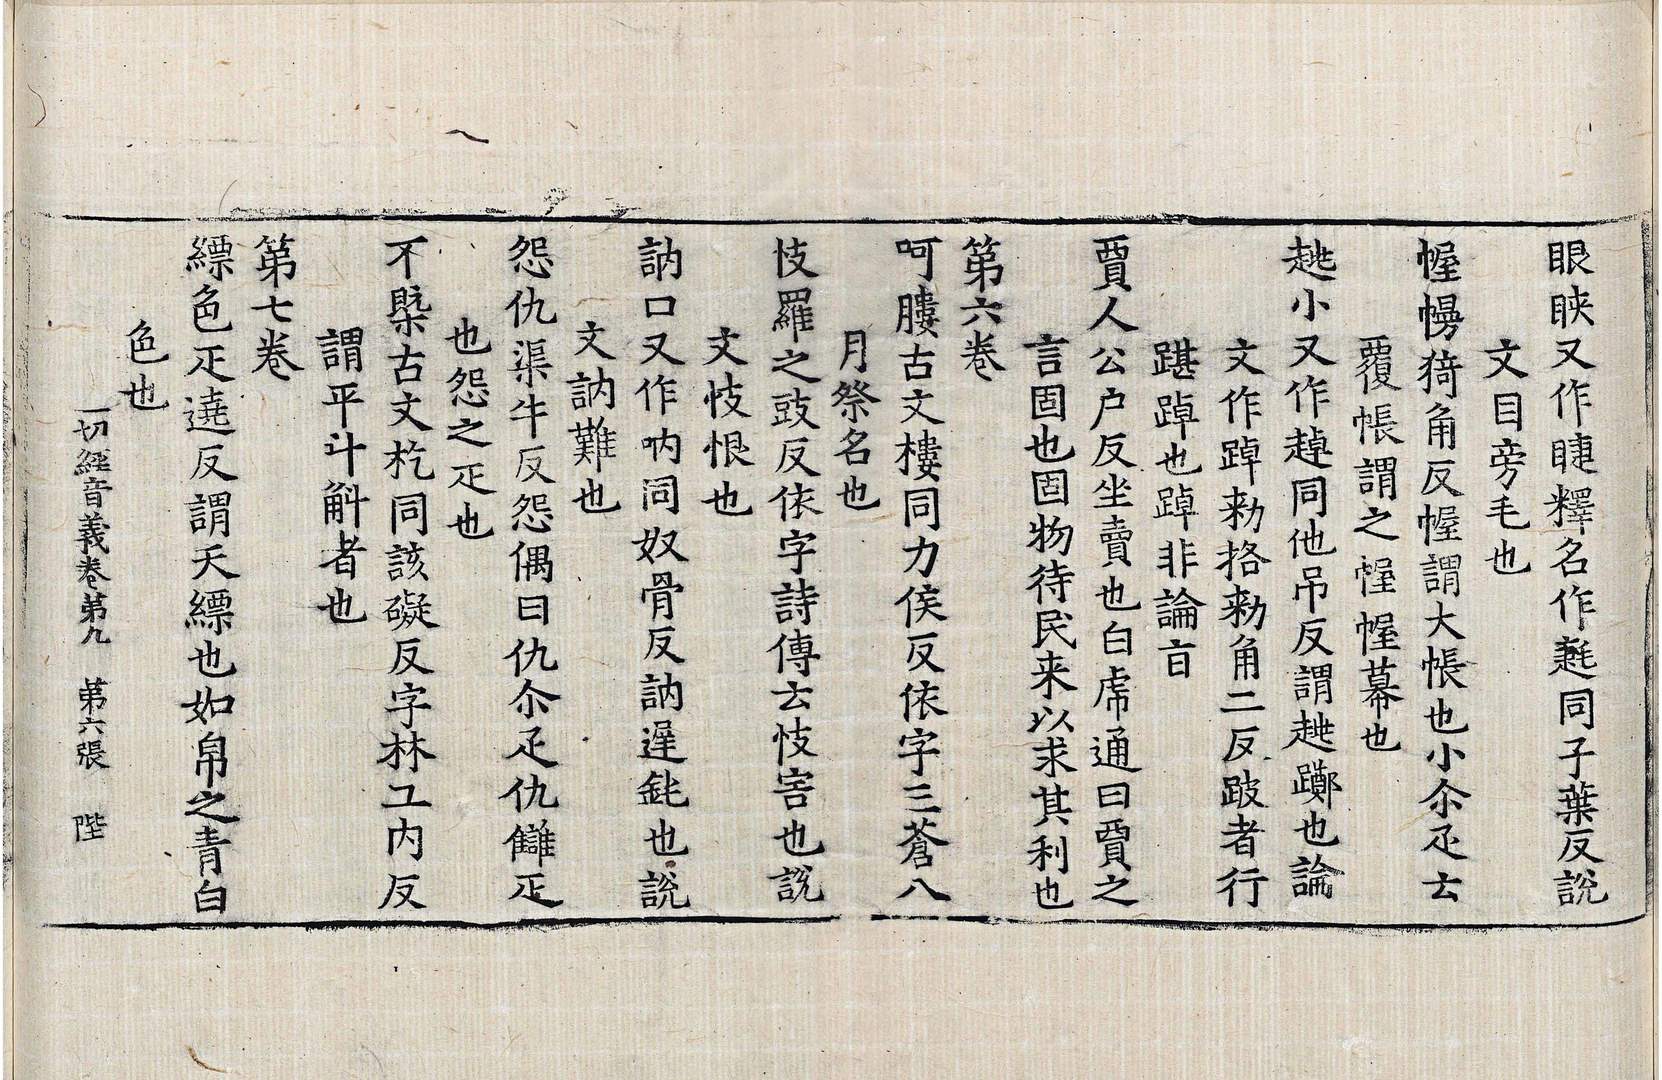 眼䀹又作睫釋名作㲯同子葉反說
文目旁毛也
幄幔猗角反幄謂大帳也小尒疋云
覆帳謂之幄幄幕也
趒小又作趠同他吊反謂趒躑也論
文作踔勑挌勑角二反跛者行
踸踔也踔非論旨
賈人公户反坐賣也白虎通曰賈之
言固也固物待民来以求其利也
第六卷
呵膢古文㡞同力侯反依字三蒼八
月祭名也
忮羅之豉反依字詩傳云忮害也說
文忮恨也
訥口又作吶同奴骨反訥遟鈍也說
文訥難也
怨仇渠牛反怨偶曰仇尒疋仇讎疋
也怨之疋也
不槩古文杚同該礙反字林工内反
謂平斗斛者也
第七卷
縹色疋遶反謂天縹也如帛之青白
色也
一切經音義卷第九 第六張 陛